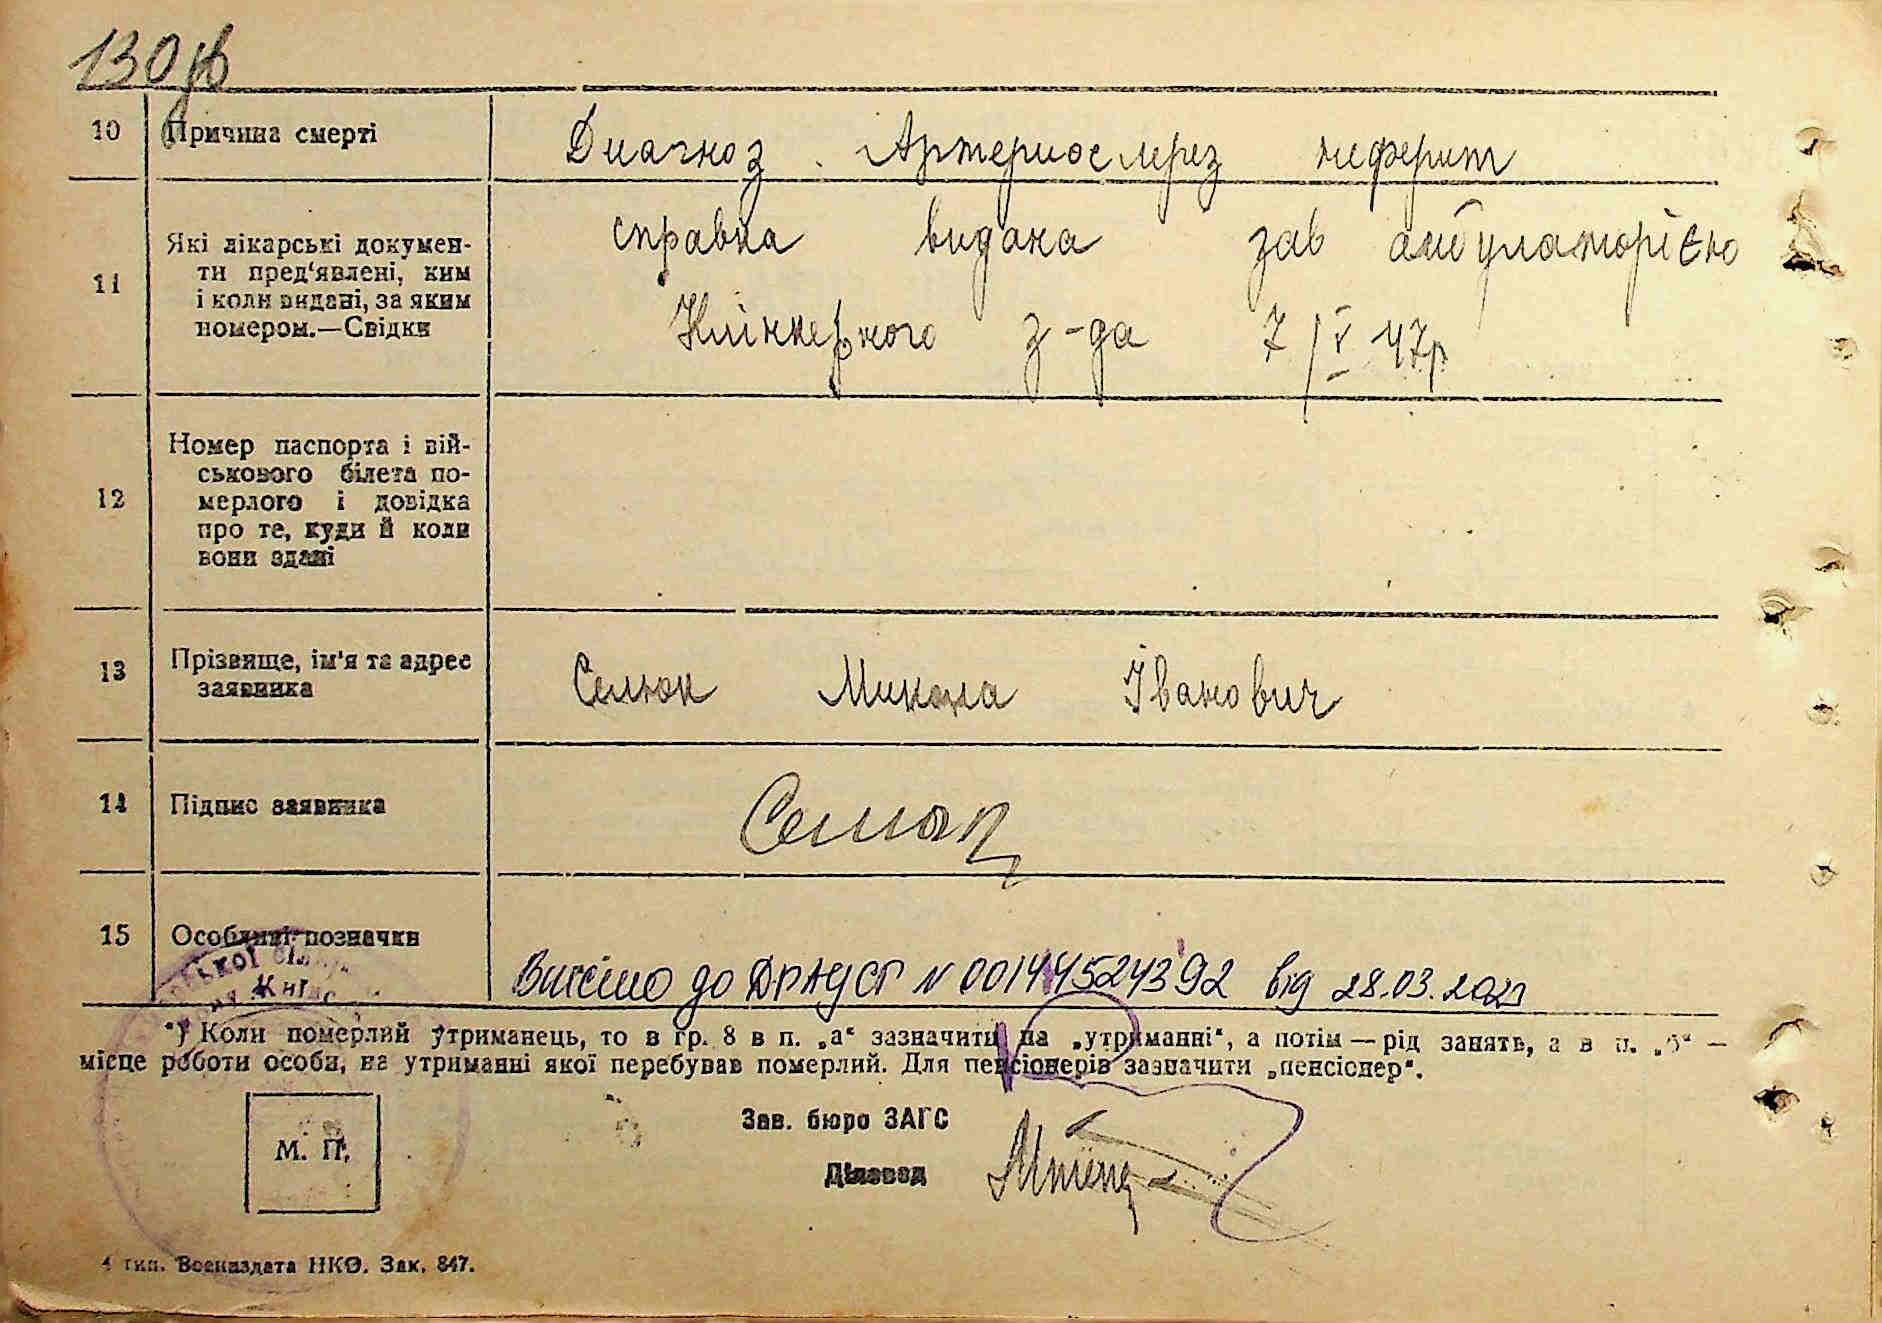 130
10 Причина смерті Диагноз. Артериосклерез неферит
11 Які лікарські докумен-
ти пред'явлені, ким
і коли видані, за яким
номером.—Свідки
справка видана зав амбулаторією
Клінкерного з-да 7/V 47р
12 Номер паспорта і вій-
ськового білета по-
мерлого і довідка
про те, куди й коли
вони здані
13 Прізвище, ім'я та адрес
заявника
Селюк Микола Іванович
14 Підпис заявника Селюк
15 Особливі позначки
Внесено до ДРАЦСГ N 00144524392 від 28.03.2021
*) Коли померлий утриманець, то в гр. 8 в п. „а“ зазначити на „утриманні“, а потім — рід занять, а в п. „б“ —
місце роботи особи, на утриманні якої перебував померлий. Для пенсіонерів зазначити „пенсіонер“.
М. П.
Зав. бюро ЗАГС
Діловод
4 тип. Воениздата НКО. Зак. 847.